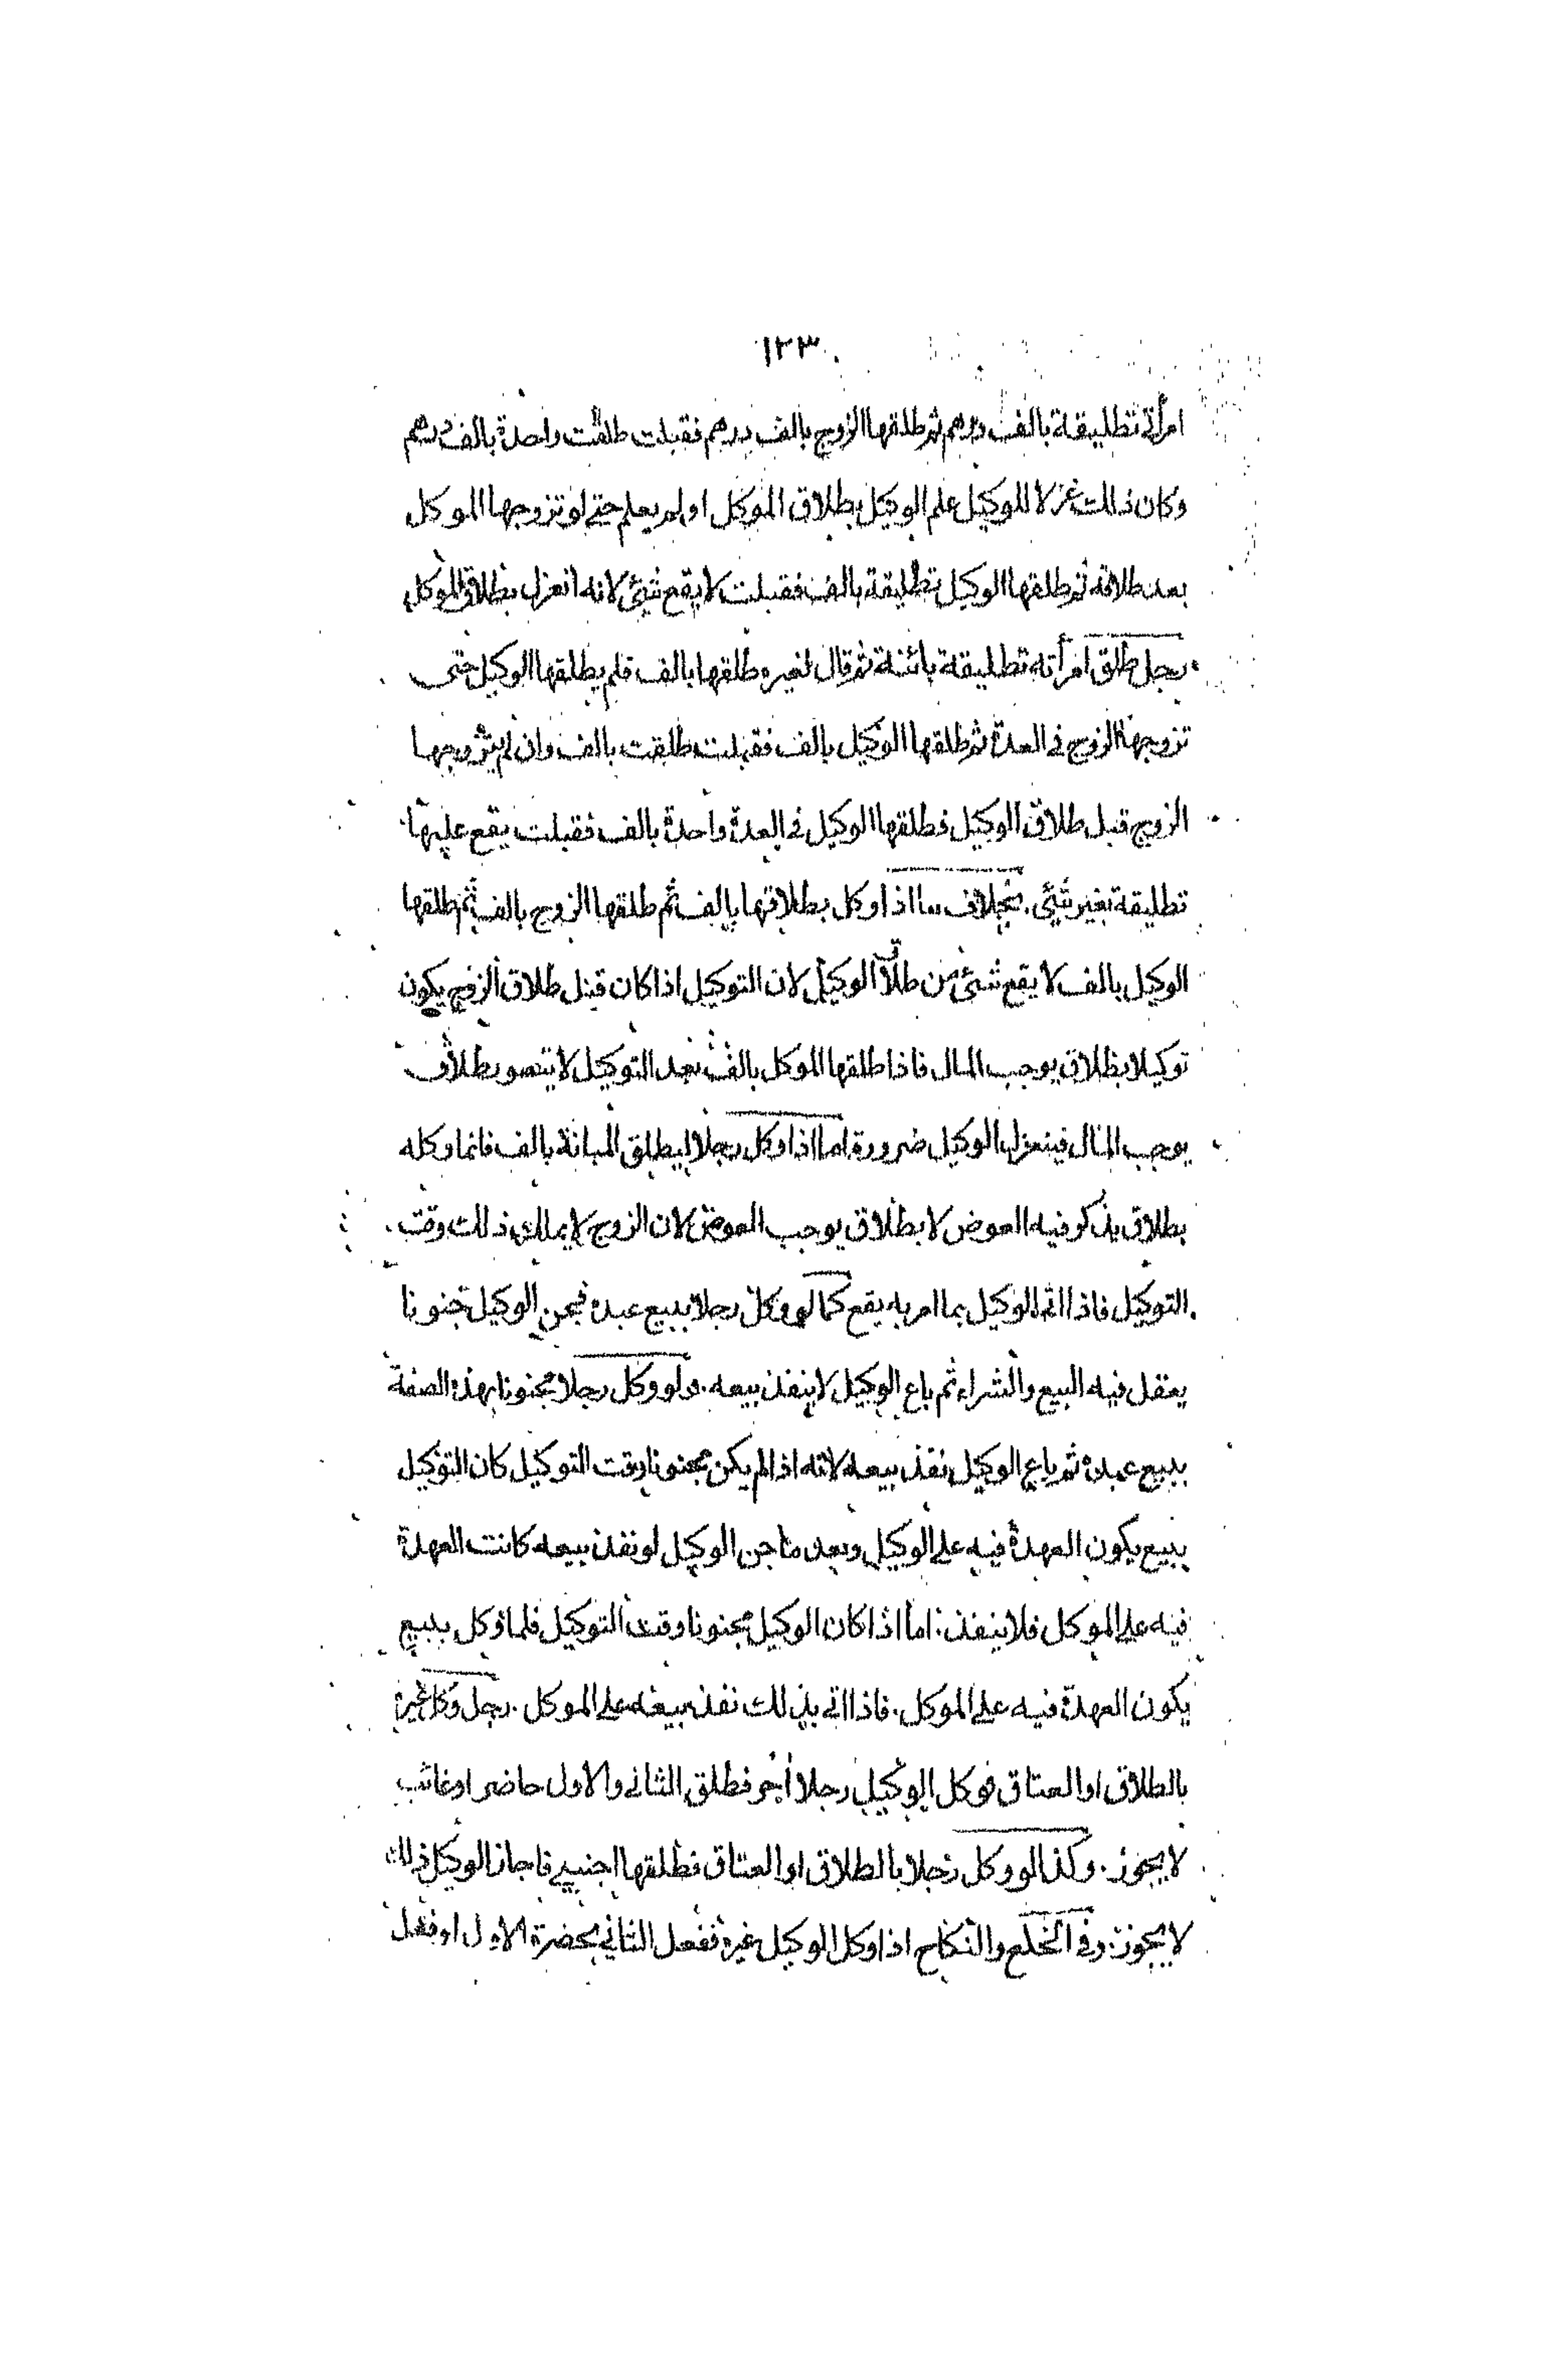 ١٢٣
امرأتي تطليقة بالف درهم ثم طلقها الزوج بالف درهم فقبلت طلقت واحدة بالف درهم
وكان ذلك عزلا للوكيل علم الوكيل بطلاق الموكل او لم يعلم حتى لو تزوجها الموكل
بعد طلاقه ثم طلقها الوكيل تطليقة بالف فقبلت لا يقع شئ لانه انعزل بطلاق الموكل
رجل طلق امرأته تطليقة بائنة ثم قال لغيره طلقها بالف فلم يطلقها الوكيل حتى
تزوجها الزوج في العدة ثم طلقها الوكيل بالف فقبلت طلقت بالف وان لم يتزوجها
الزوج قبل طلاق الوكيل فطلقها الوكيل في العدة واحدة بالف فقبلت يقع عليها
تطليقة بغير شئ. بخلاف ما اذا وكل بطلاقها بالف ثم طلقها الزوج بالف ثم طلقها
الوكيل بالف لا يقع شئ من طلاق الوكيل لان التوكيل اذا كان قبل طلاق الزوج يكون
توكيلا بطلاق يوجب المال فاذا طلقها الموكل بالف بعد التوكيل لا يتصور طلاق
يوجب المال فينعزل الوكيل ضرورة اما اذا وكل رجلا ليطلق المبانة بالف فانما وكله
بطلاق يذكر فيه العوض لا بطلاق يوجب العوض لان الزوج لا يملك ذلك وقت
التوكيل فاذا اتى الوكيل بما امر به يقع كما لو وكل رجلا ببيع عبده فجن الوكيل جنونا
يعقل فيه البيع والشراء ثم باع الوكيل لا ينفذ بيعه. ولو وكل رجلا مجنونا بهذه الصفة
ببيع عبده ثم باع الوكيل نفذ بيعه لانه اذا لم يكن مجنونا وقت التوكيل كان التوكيل
ببيع يكون العهدة فيه على الوكيل وبعد ما جن الوكيل لو نفذ بيعه كانت العهدة
فيه على الموكل فلا ينفذ. اما اذا كان الوكيل مجنونا وقت التوكيل فانما وكل ببيع
يكون العهدة فيه على الموكل. فاذا اتى بذلك نفذ بيعه على الموكل. رجل وكل غيره
بالطلاق او العتاق فوكل الوكيل رجلا آخر فطلق الثاني والاول حاضر او غائب
لا يجوز. وكذا لو وكل رجلا بالطلاق او العتاق فطلقها اجنبي فاجاز الوكيل ذلك
لا يجوز. وفي الخلع والنكاح اذا وكل الوكيل غيره ففعل الثاني بحضرة الاول او فعل